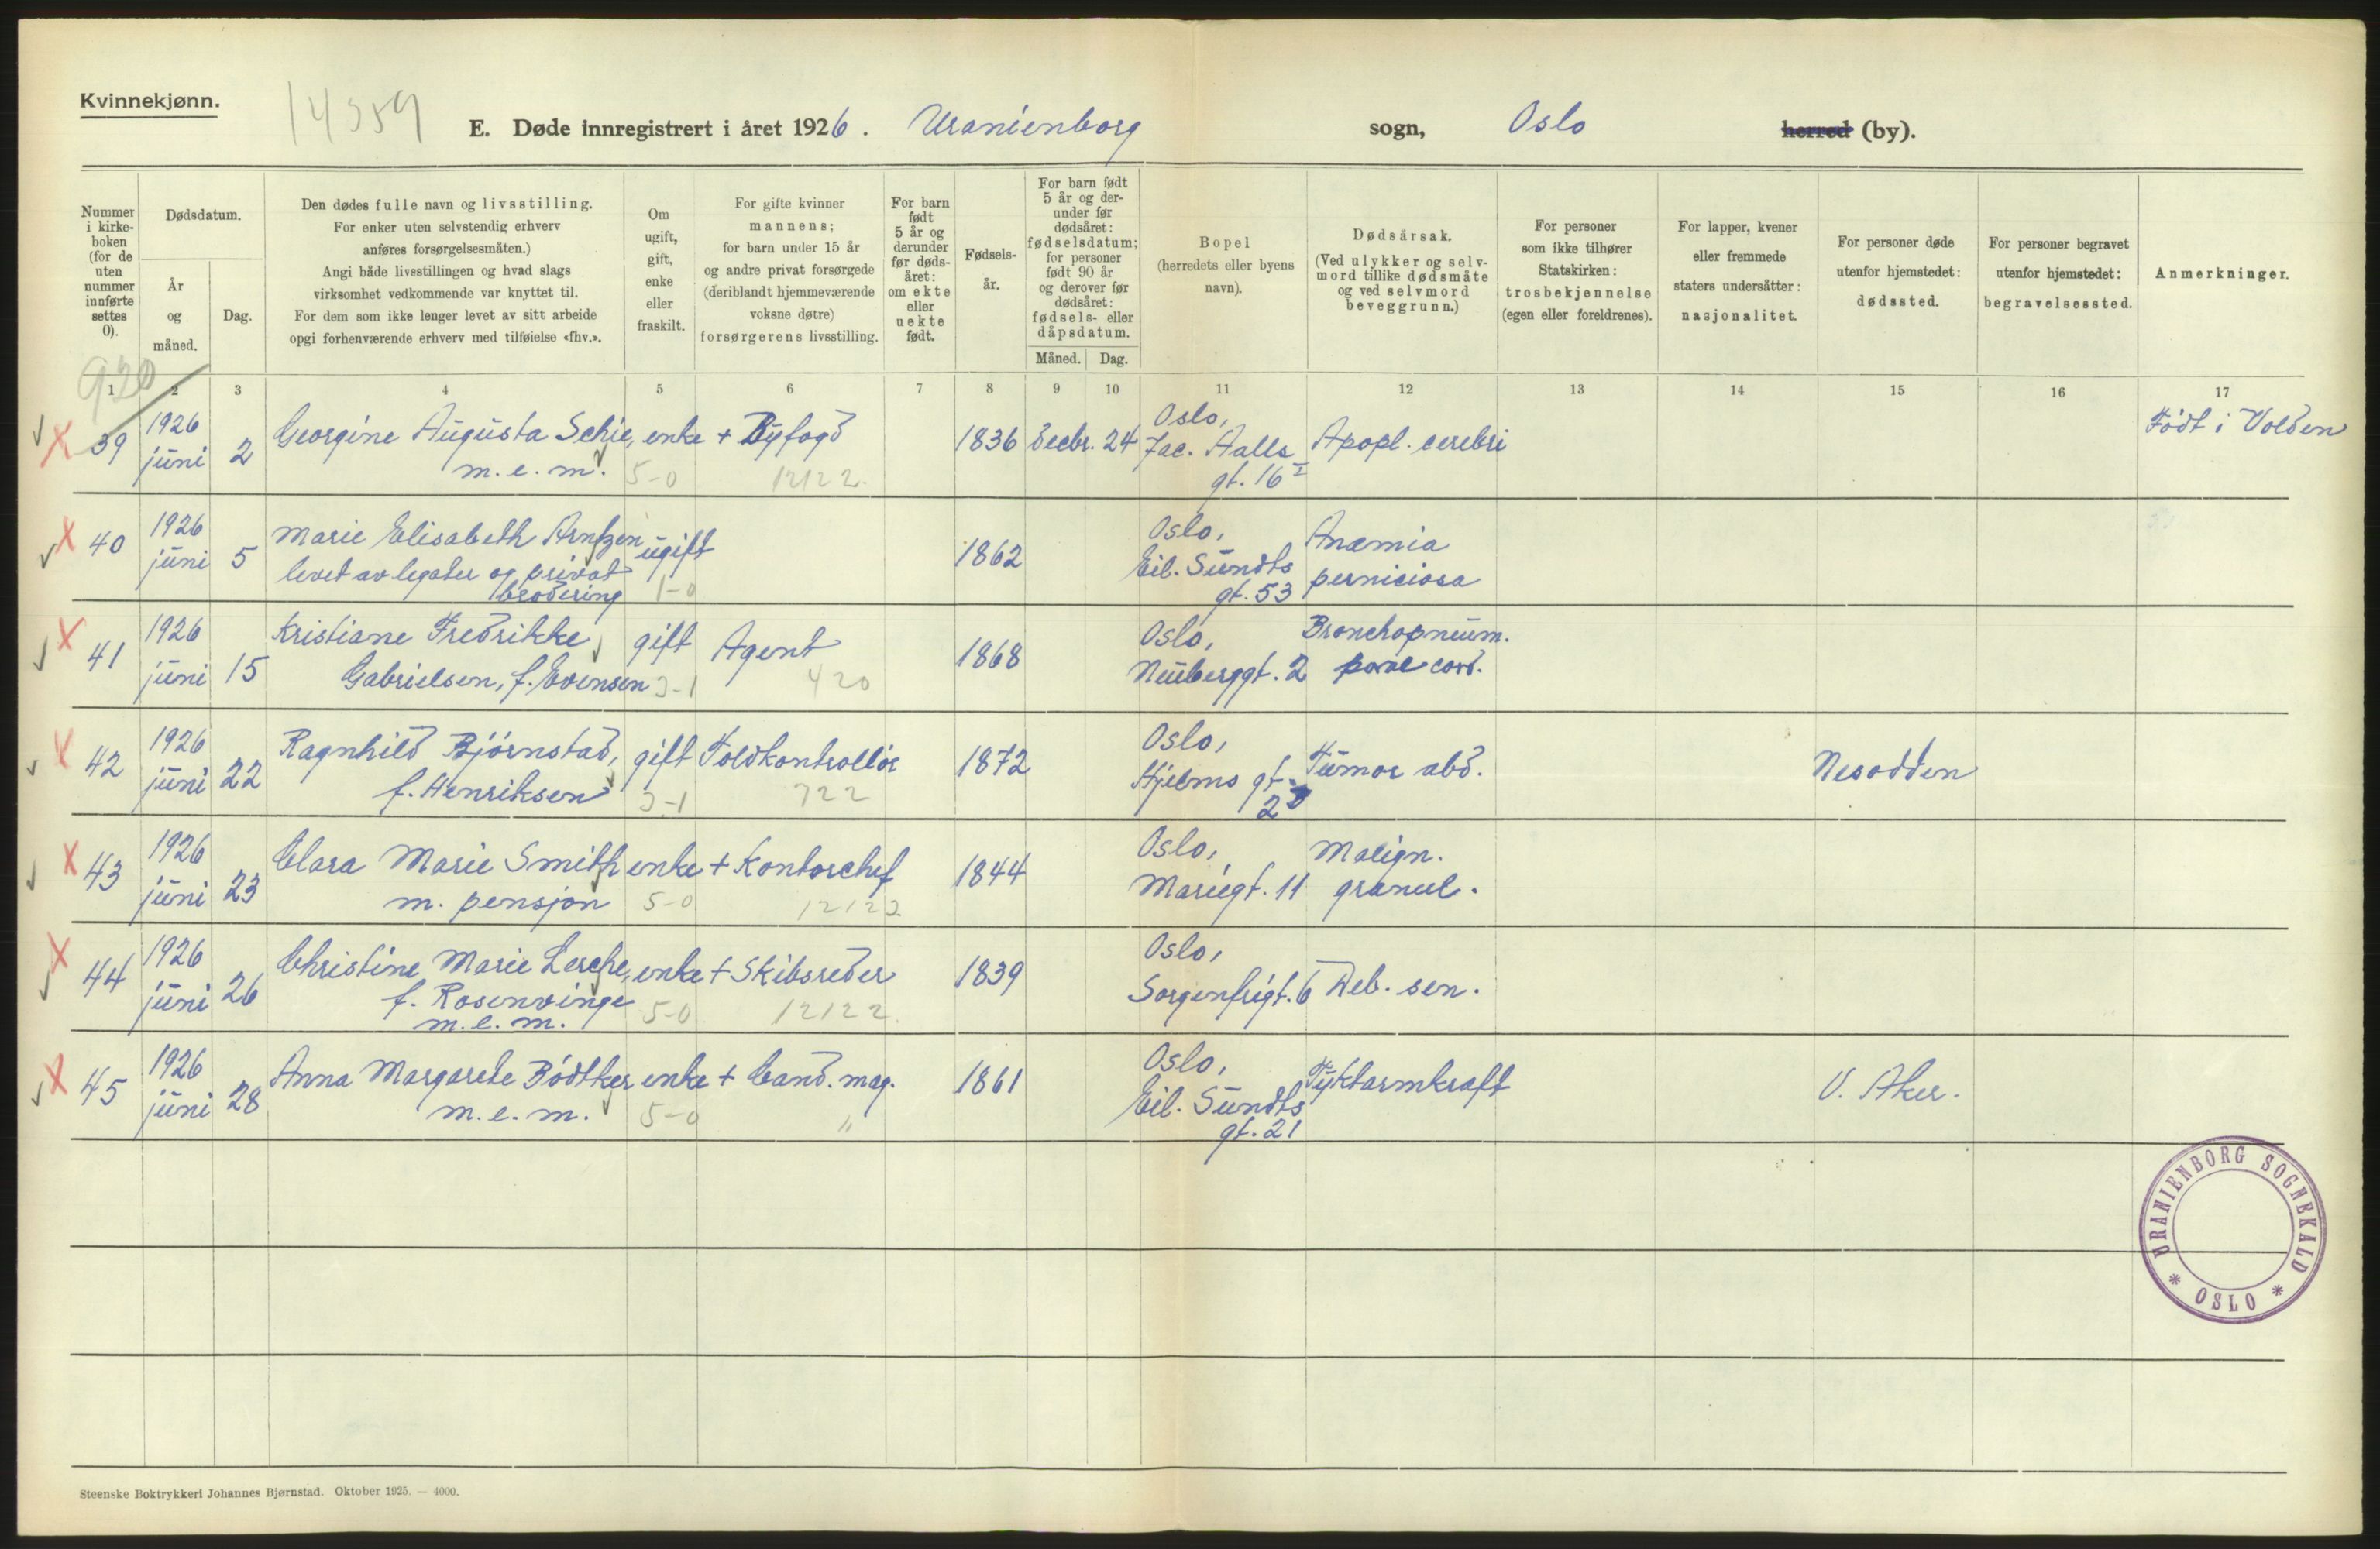 Kvinnekjønn.
14359
E. Døde innregistrert i året 1926. Uranienborg sogn, Oslo herred (by).
Nummer i kirke-boken (for de uten nummer innførte settes 0).
Dødsdatum.
År og måned.
Dag.
Den dødes fulle navn og livsstilling.
For enker uten selvstendig erhverv
anføres forsørgelsesmåten.)
Angi både livsstillingen og hvad slags
virksomhet vedkommende var knyttet til.
For dem som ikke lenger levet av sitt arbeide
opgi forhenværende erhverv med tilføielse «fhv.».
Om ugift, gift, enke eller fraskilt.
For gifte kvinner
mannens;
for barn under 15 år
og andre privat forsørgede
(deriblandt hjemmeværende
voksne døtre)
forsørgerens livsstilling.
For barn født 5 år og derunder før døds-året: om ekte eller uekte født.
Fødsels-år.
For barn født 5 år og der-under før dødsåret: fødselsdatum; for personer født 90 år og derover før dødsåret: fødsels- eller dåpsdatum.
Måned. Dag.
Bopel
(herredets eller byens
navn).
Dødsårsak.
(Ved ulykker og selv-
mord tillike dødsmåte
og ved selvmord
beveggrunn.)
For personer
som ikke tilhører
Statskirken:
trosbekjennelse
(egen eller foreldrenes).
For lapper, kvener
eller fremmede
staters undersåtter:
nasjonalitet.
For personer døde
utenfor hjemstedet:
dødssted.
For personer begravet
utenfor hjemstedet:
begravelsessted.
Anmerkninger.
920
1 2 3 4 5 6 7 8 9 10 11 12 13 14 15 16 17
39 1926 juni 2 Georgine Augusta Schie, m.e.m. enke 5-0 + Byfogd 12122. 1836 Decbr. 24 Oslo, Jac. Aalls gt. 16 I Apopl. cerebri Født i Volden
40 1926 juni 5 Marie Elisabeth Arntzen levet av legater og privat brodering ugift 1-0 1862 Oslo, Eil. Sundts gt. 53 Anæmia perniciosa
41 1926 juni 15 Kristiane Fredrikke Gabrielsen, f. Evensen gift 3-1 Agent 420 1868 Oslo, Neuberggt. 2 Bronchopneum. paral cord.
42 1926 juni 22 Ragnhild Bjørnstad, f. Henriksen gift 3-1 Toldkontrollør 722 1872 Oslo, Hjelms gt. 2 Tumor abd. Nesodden
43 1926 juni 23 Clara Marie Smith m. pensjon enke 5-0 + Kontorchef 12122 1844 Oslo, Mariegt. 11 Malign. granul.
44 1926 juni 26 Christine Marie Lerche, f. Rosenvinge m.e.m. enke 5-0 + Skibsreder 12122. 1839 Oslo, Sorgenfrigt. 6 Deb. sen.
45 1926 juni 28 Anna Margarete Bödtker m.e.m. enke 5-0 + Cand. mag. " 1861 Oslo, Eil. Sundts gt. 21 Tyktarmkraft V. Aker.
URANIENBORG SOGNEKALD
* OSLO *
Steenske Boktrykkeri Johannes Bjørnstad. Oktober 1925. — 4000.